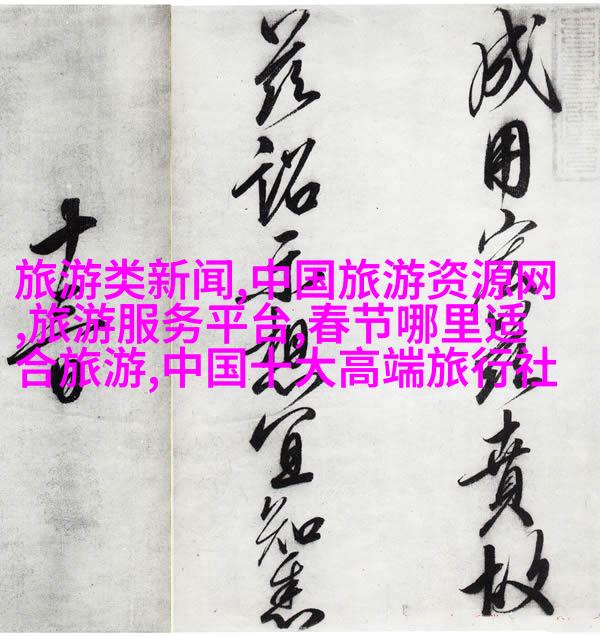 旅游类新闻,中国旅游资源网
,旅游服务平台,春节哪里适
合旅游,中国十大高端旅行社
成用賁故
茲詔示想宜知悉
十日